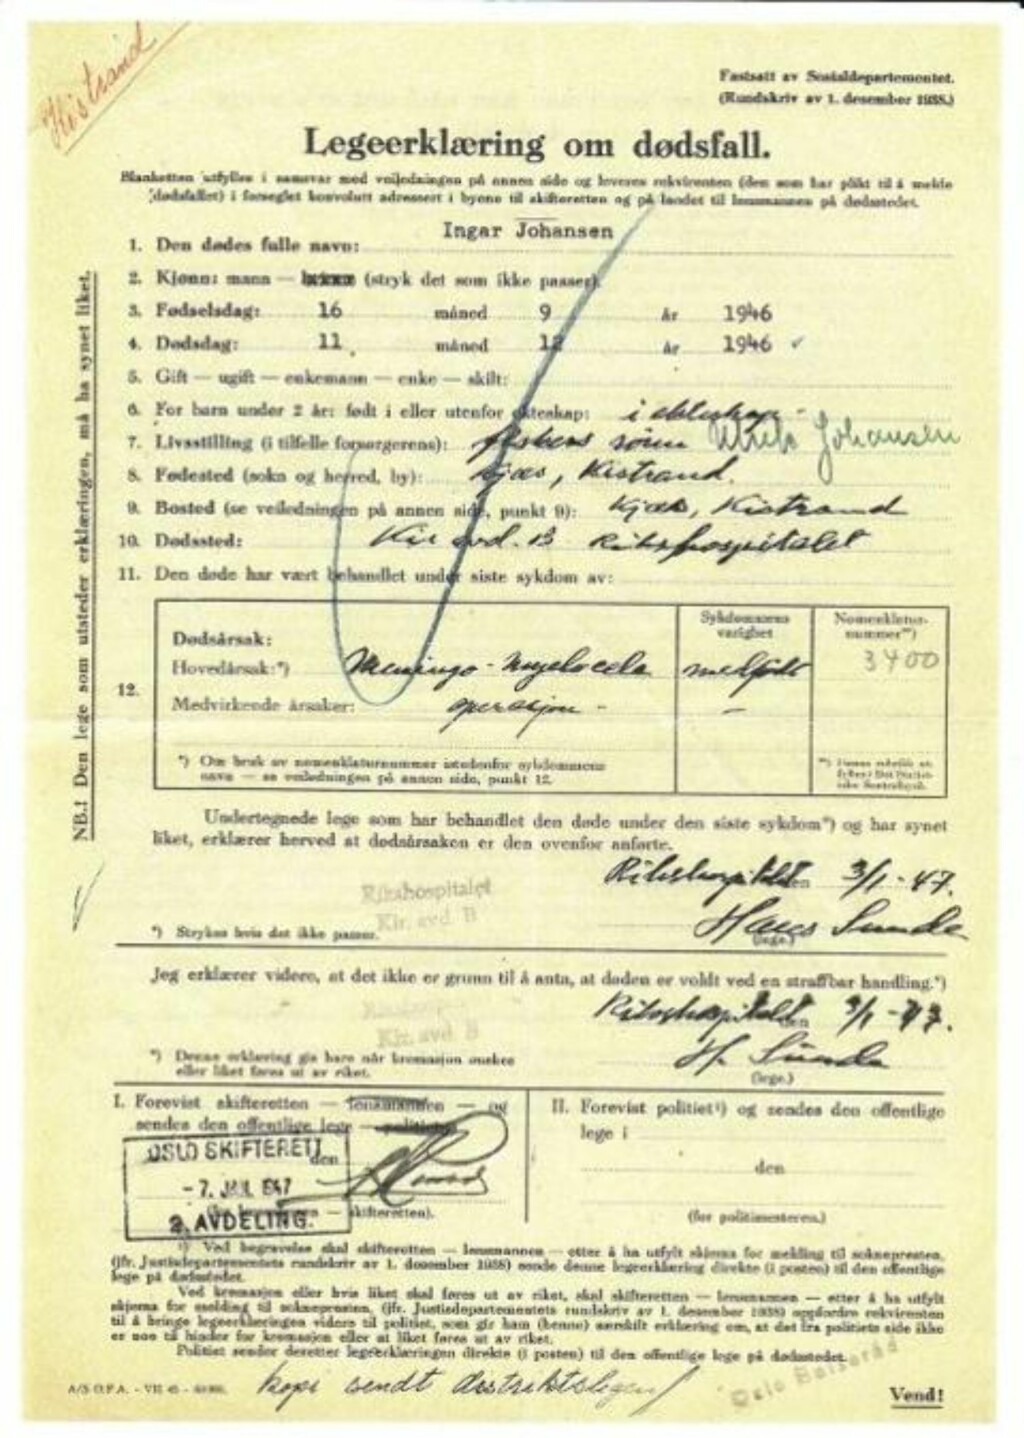 Kistrand
Fastsatt av Sosialdepartementet.
(Rundskriv av 1. desember 1938.)
Legeerklæring om dødsfall.
Blanketten utfylles i samsvar med veiledningen på annen side og leveres rekvirenten (den som har plikt til å melde
dødsfallet) i forseglet konvolutt adressert i byene til skifteretten og på landet til lensmannen på dødsstedet.
NB.! Den lege som utsteder erklæringen, må ha synet liket.
1. Den dødes fulle navn: Ingar Johansen
2. Kjønn: mann — (stryk det som ikke passer)
3. Fødselsdag: 16 måned 9 år 1946
4. Dødsdag: 11 måned 12 år 1946
5. Gift — ugift — enkemann — enke — skilt:
6. For barn under 2 år: født i eller utenfor ekteskap: i ekteskap -
7. Livsstilling (i tilfelle forsørgerens): fiskers sønn Johansen
8. Fødested (sokn og herred, by): Kjæs, Kistrand.
9. Bosted (se veiledningen på annen side, punkt 9): Kjæs, Kistrand
10. Dødssted: Kir avd. B Rikshospitalet
11. Den døde har vært behandlet under siste sykdom av:
Sykdommens varighet
Nomenklatur-nummer**)
12. Dødsårsak:
Hovedårsak:*) Meningo-myelocele medfødt 3400
Medvirkende årsaker: operasjon - —
*) Om bruk av nomenklaturnummer istedenfor sykdommens
navn — se veiledningen på annen side, punkt 12.
Undertegnede lege som har behandlet den døde under den siste sykdom*) og har synet
liket, erklærer herved at dødsårsaken er den ovenfor anførte.
Rikshospitalet 3/1-47.
Rikshospitalet
Kir. avd. B
Hans Sunde
(lege.)
*) Strykes hvis det ikke passer.
Jeg erklærer videre, at det ikke er grunn til å anta, at døden er voldt ved en straffbar handling.*)
Rikshospitalet 3/1-47.
Kir. avd. B
H. Sunde
(lege.)
*) Denne erklæring gis bare når kremasjon ønskes
eller liket føres ut av riket.
I. Forevist skifteretten — lensmannen — og
sendes den offentlige lege — politiet
OSLO SKIFTERETT
- 7. JAN. 1947
2. AVDELING.
skifteretten).
II. Forevist politiet¹) og sendes den offentlige
lege i
den
(for politimesteren.)
¹) Ved begravelse skal skifteretten — lensmannen — etter å ha utfylt skjema for melding til soknepresten,
(jfr. Justisdepartementets rundskriv av 1. desember 1938) sende denne legeerklæring direkte (i posten) til den offentlige
lege på dødsstedet.
Ved kremasjon eller hvis liket skal føres ut av riket, skal skifteretten — lensmannen — etter å ha utfylt
skjema for melding til soknepresten, (jfr. Justisdepartementets rundskriv av 1. desember 1938) oppfordre rekvirenten
til å bringe legeerklæringen videre til politiet, som gir ham (henne) særskilt erklæring om, at det fra politiets side ikke
er noe til hinder for kremasjon eller at liket føres ut av riket.
Politiet sender deretter legeerklæringen direkte (i posten) til den offentlige lege på dødsstedet.
Oslo Helseråd
A/S O.F.A. - VII 45 -
kopi sendt distriktslegen
Vend!